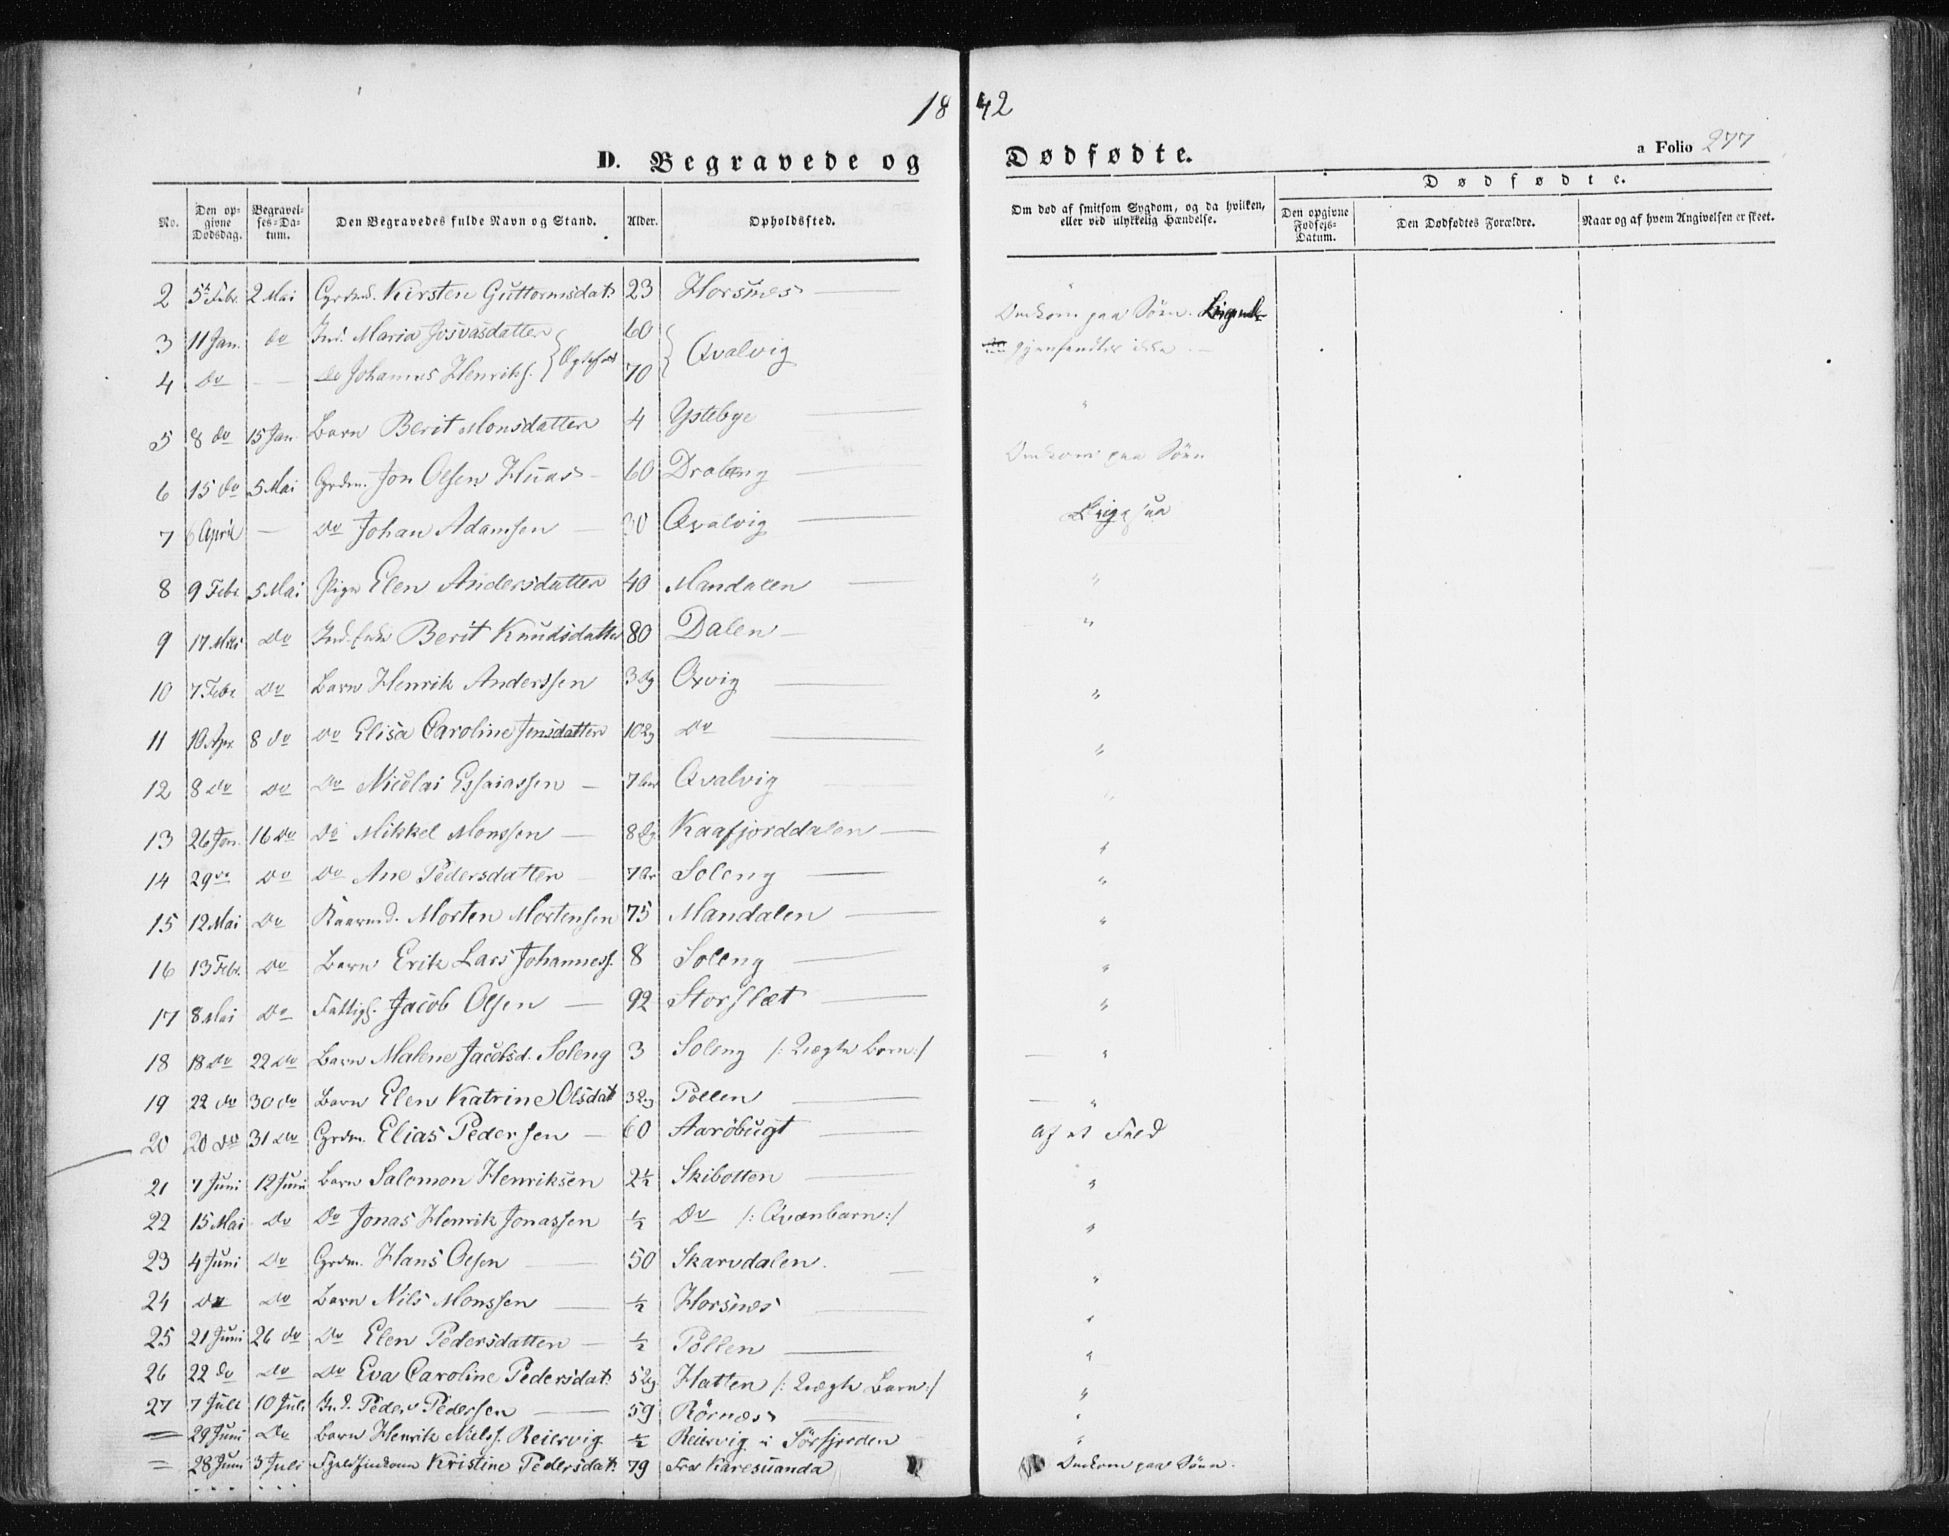 1842
D. Begravede og Dødfødte.
a Folio 277
No. | Den opgivne Dødsdag. | Begravelses-Datum. | Den Begravedes fulde Navn og Stand. | Alder. | Opholdssted. | Om død af smitsom Sygdom, og da hvilken, eller ved ulykkelig Hændelse. | Dødfødte. | Den opgivne Fødsels-Datum. | Den Dødfødtes Forældre. | Naar og af hvem Angivelsen er skeet.
2 | 5t Febr. | 2 Mai | Kirsten Guttormsdat: | 23 | Horsnes | "
3 | 11 Jan. | do | Ind. Maria Josvasdatter | 60 | Qvalvig | Omkom paa Søen.
4 | do | — | do Johannes Henriks. | 70 | gjenfandtes ikke
5 | 8 do | 15 Jan. | Barn Berit Monsdatter | 4 | Ystebye | "
6 | 15 do | 5 Mai | Grdm. Jon Olsen Huas | 60 | Draleng | Omkom paa Søen
7 | 6 April | — | Do Johan Adamsen | 30 | Qvalvig | Ligesaa
8 | 9 Febr | 5 Mai | Pige Elen Andersdatter | 40 | Mandalen | "
9 | 17 | Do | Ind. Enke Berit Knudsdatter | 80 | Dalen | "
10 | 7 Febr | Do | Barn Henrik Anderssen | 3 Dg | Oxvig | "
11 | 10 Apr. | 8 do | Do Elisa Caroline Jensdatter | 10 Dg | Do | "
12 | 8 do | Do | Do Nicolai Essaiassen | 7 | Qvalvig | "
13 | 26 Jan. | 16 Do | Do Mikkel Monssen | 8 Dg. | Kaafjorddalen | "
14 | 29 do | Do | Do Ane Pedersdatter | 7 | Soleng | "
15 | 12 Mai | Do | Kaarmd. Morten Mortensen | 75 | Mandalen | "
16 | 13 Febr. | Do | Barn Erik Lars Johanness. | 8 | Soleng | "
17 | 8 Mai | Do | Fattigl. Jacob Olsen | 92 | Storslet | "
18 | 18 do | 22 do | Barn Malene Jacobsd. Soleng | 3 | Soleng /: Uægte Barn :/ | "
19 | 22 do | 30 do | Barn Elen Katrine Olsdat | 3 Dg | Pollen | "
20 | 20 do | 31 do | Grdm. Elias Pedersen | 60 | Aarøbugt | Af et Fald
21 | 7 Juni | 12 Juni | Barn Salomon Henriksen | 2½ | Skibotten | "
22 | 15 Mai | Do | Do Jonas Henrik Jonassen | ½ | Do /: Qvænbarn :/ | "
23 | 4 Juni | Do | Grdm. Hans Olsen | 50 | Skarvdalen. | "
24 | Do | Do | Barn Nils Monssen | ½ | Horsnes | "
25 | 21 Juni | 26 do | Do Elen Pedersdatter | ½ | Pollen | "
26 | 22 do | Do | Do Eva Caroline Pedersdat: | 5 Dg | Hatten /: Uægte Barn :/ | "
27 | 7 Juli | 10 Juli | Ind. Peder Pedersen | 59 | Rørnæs | "
= | 29 Juni | Do | Barn Henrik Niels. Reiervig | ½ | Reiervig i Sørfjorden | "
= | 28 Juni | 3 Juli | Kristine Pedersdat: | 79 | Fra Karesuanda | Omkom paa Søen.